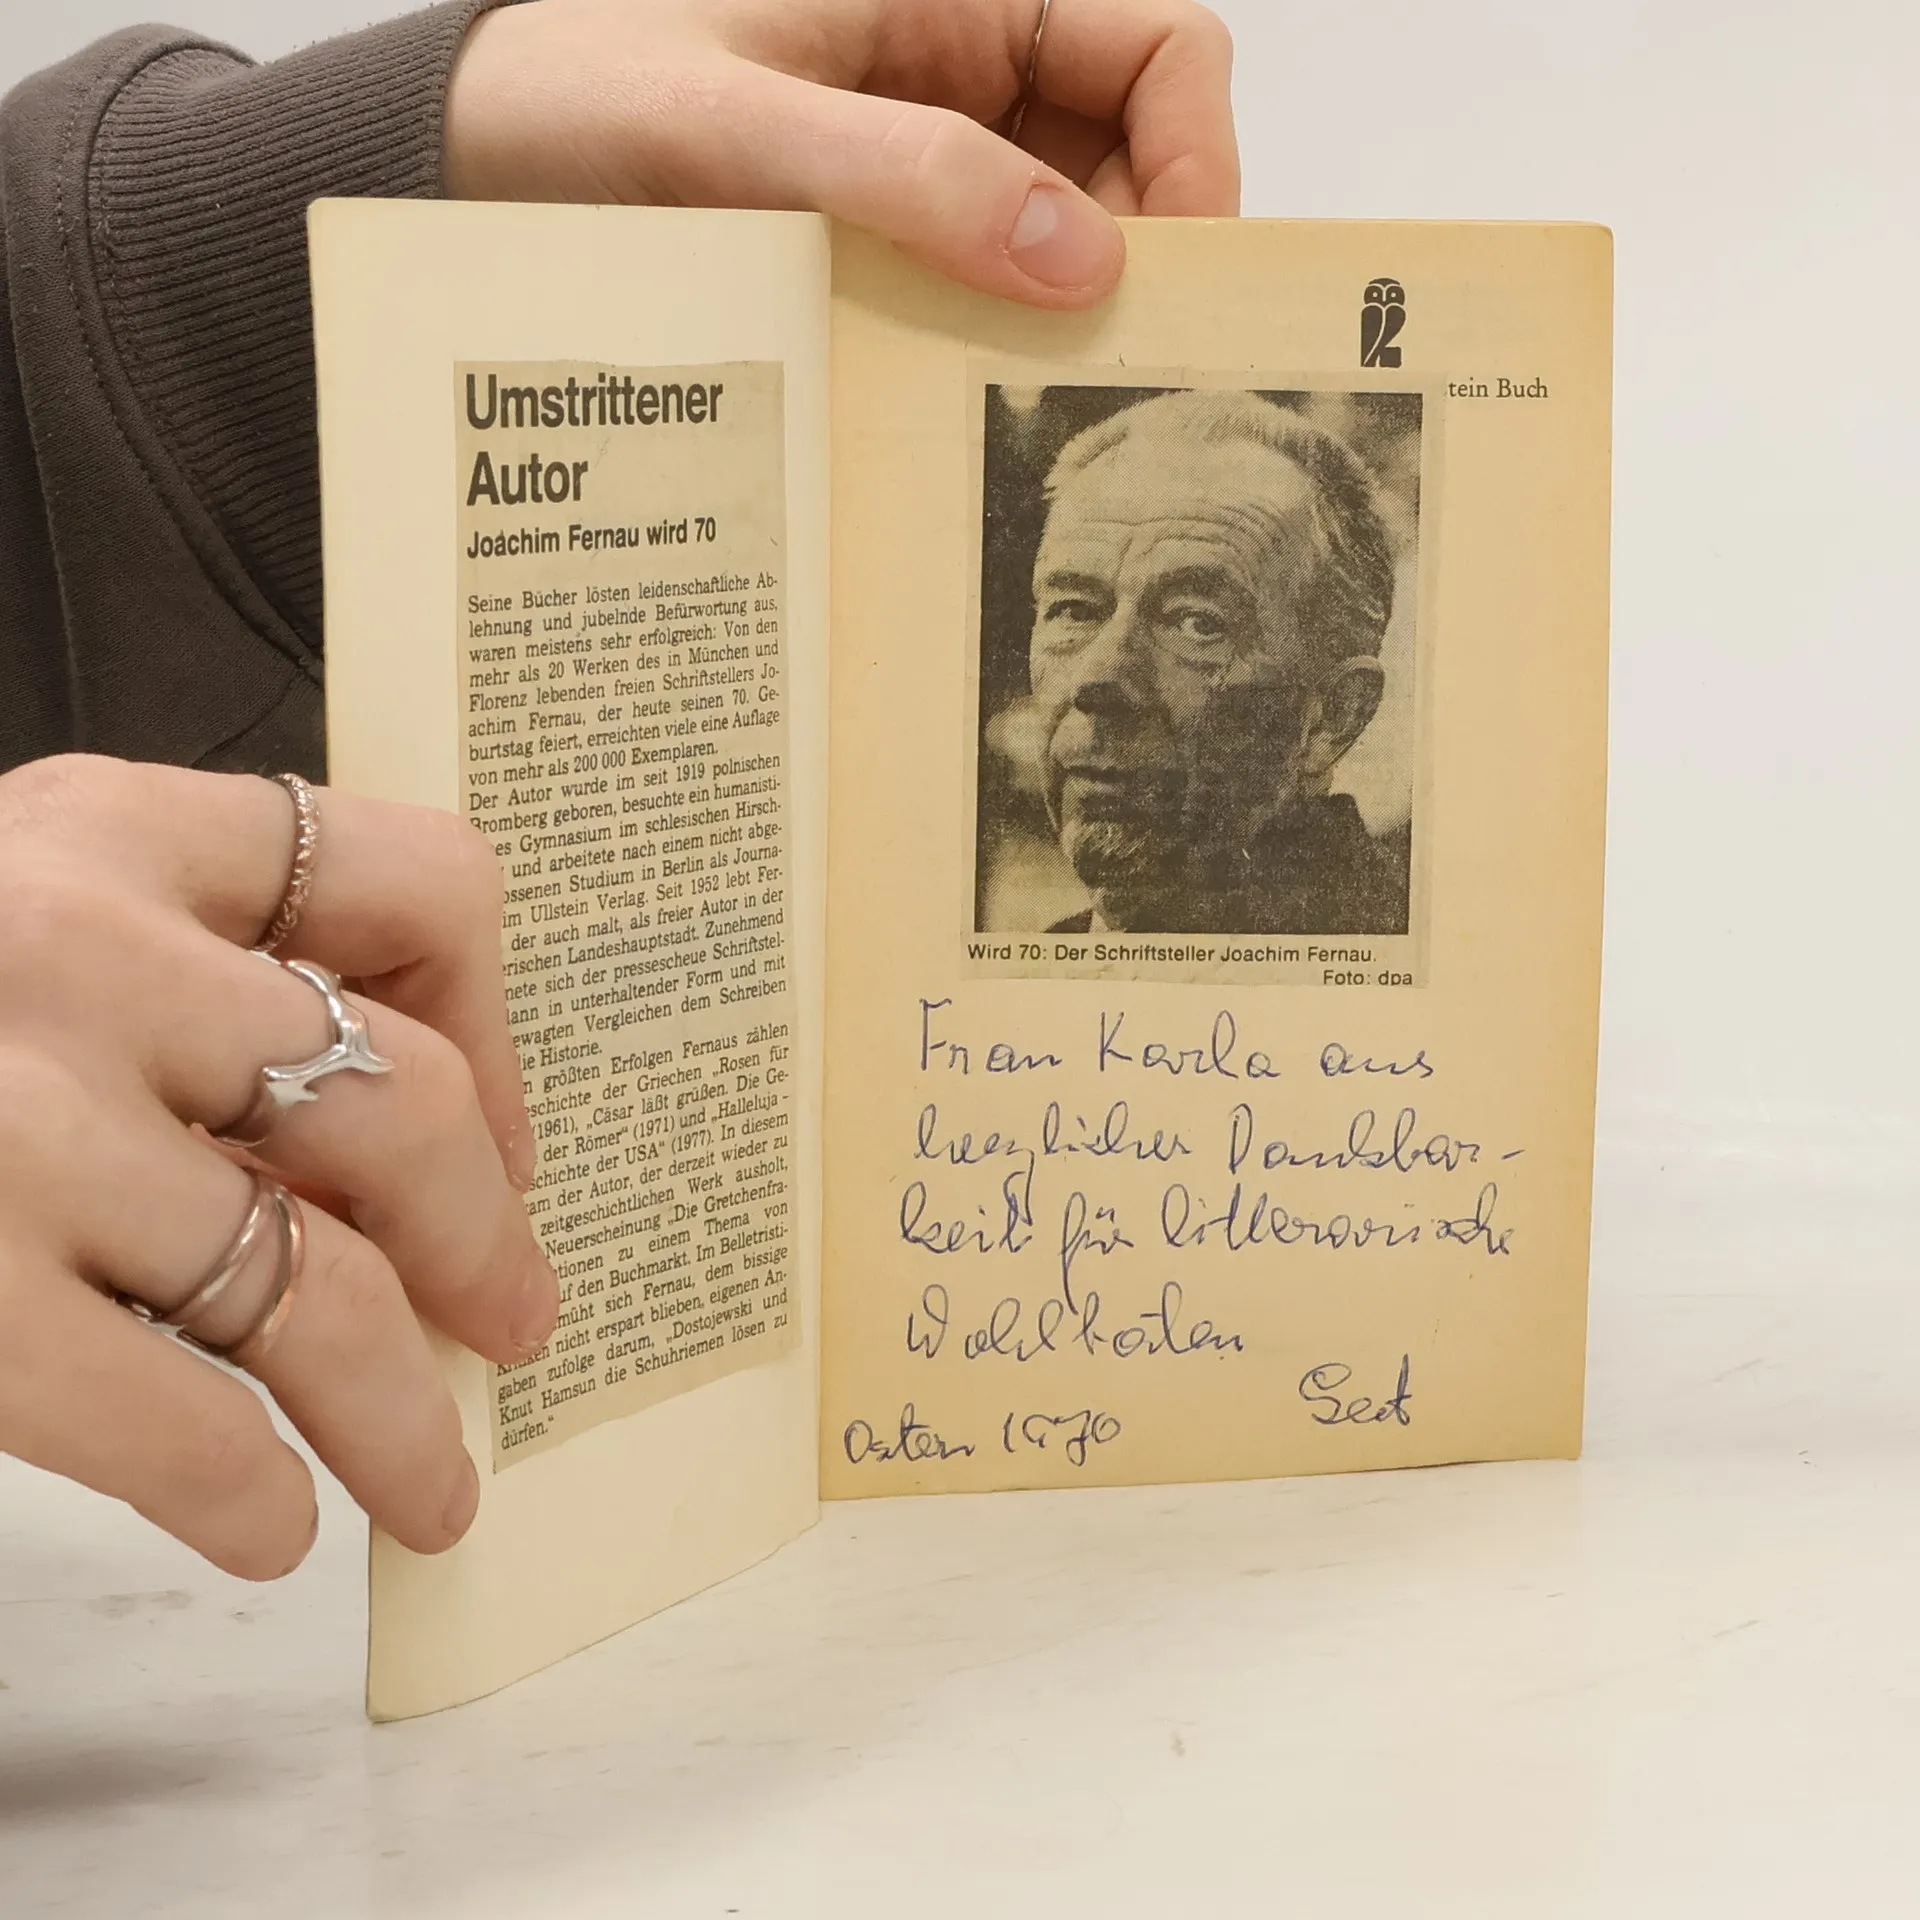 Umstrittener
Autor
Joachim Fernau wird 70
Seine Bücher lösten leidenschaftliche Ab-
lehnung und jubelnde Befürwortung aus,
waren meistens sehr erfolgreich: Von den
mehr als 20 Werken des in München und
Florenz lebenden freien Schriftstellers Jo-
achim Fernau, der heute seinen 70. Ge-
burtstag feiert, erreichten viele eine Auflage
von mehr als 200 000 Exemplaren.
Der Autor wurde im seit 1919 polnischen
Bromberg geboren, besuchte ein humanisti-
es Gymnasium im schlesischen Hirsch-
und arbeitete nach einem nicht abge-
ossenen Studium in Berlin als Journa-
im Ullstein Verlag. Seit 1952 lebt Fer-
der auch malt, als freier Autor in der
erischen Landeshauptstadt. Zunehmend
nete sich der pressescheue Schriftstel-
ann in unterhaltender Form und mit
ewagten Vergleichen dem Schreiben
ie Historie.
n größten Erfolgen Fernaus zählen
eschichte der Griechen „Rosen für
(1961), „Cäsar läßt grüßen. Die Ge-
der Römer“ (1971) und „Halleluja -
schichte der USA“ (1977). In diesem
am der Autor, der derzeit wieder zu
zeitgeschichtlichen Werk ausholt,
Neuerscheinung „Die Gretchenfra-
tionen zu einem Thema von
uf den Buchmarkt. Im Belletristi-
müht sich Fernau, dem bissige
Kritiken nicht erspart blieben, eigenen An-
gaben zufolge darum, „Dostojewski und
Knut Hamsun die Schuhriemen lösen zu
dürfen.“
tein Buch
Wird 70: Der Schriftsteller Joachim Fernau.
Foto: dpa
Frau Karla aus
herzlicher Dankbar-
keit für litterarische
Wohltaten
Ostern 1970